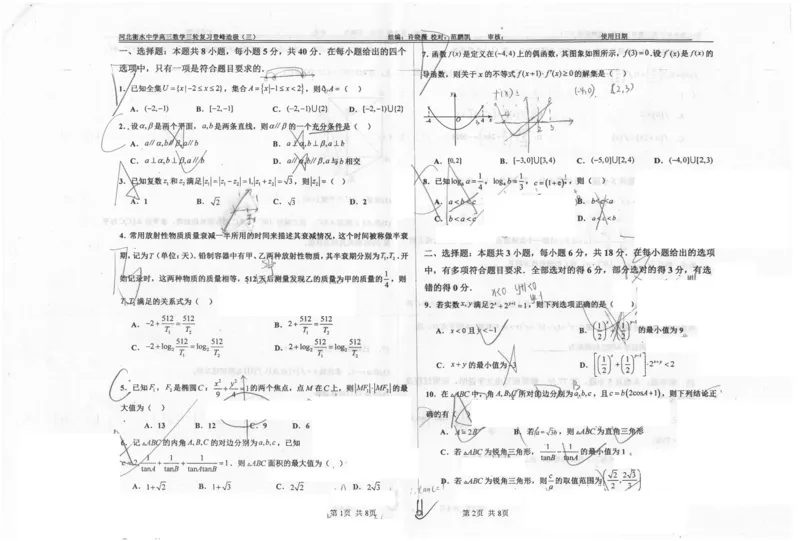 河北衡水中学高三数学三轮复习登峰造极（三）
组编：许晓薇 校对：范鹏凯 审核： 使用日期
一、选择题：本题共 8 小题，每小题 5 分，共 40 分．在每小题给出的四个
选项中，只有一项是符合题目要求的．
1．已知全集U={x|−2≤x≤2}，集合A={x|−1≤x<2}，则∁ᵤA=（ ）
A．(−2,−1) B．[−2,−1] C．(−2,−1)∪{2} D．[−2,−1)∪{2}
2．设α,β是两个平面，a,b是两条直线，则α//β的一个充分条件是（ ）
A．a//α,b//β,a//b B．a⊥α,b⊥β,a⊥b
C．a⊥α,b⊥β,a//b D．a//α,b//β,a与b相交
3．已知复数z₁和z₂满足|z₁|=|z₁−z₂|=1,|z₁+z₂|=√3，则|z₂|=（ ）
A．1 B．√2 C．√3 D．2
4．常用放射性物质质量衰减一半所用的时间来描述其衰减情况，这个时间被称做半衰
期，记为T（单位：天）．铅制容器中有甲、乙两种放射性物质，其半衰期分别为T₁,T₂．开
始记录时，这两种物质的质量相等，512天后测量发现乙的质量为甲的质量的1/4，则
T₁,T₂满足的关系式为（ ）
A．−2+512/T₁=512/T₂ B．2+512/T₁=512/T₂
C．−2+log₂512/T₁=log₂512/T₂ D．2+log₂512/T₁=log₂512/T₂
5．已知F₁，F₂是椭圆C：x²/9+y²/4=1的两个焦点，点M在C上，则|MF₁|·|MF₂|的最
大值为（ ）
A．13 B．12 C．9 D．6
6．记△ABC的内角A,B,C的对边分别为a,b,c，已知
c=2,1/tanA+1/tanB+1/tanAtanB=1．则△ABC面积的最大值为（ ）
A．1+√2 B．1+√3 C．2√2 D．2√3
第 1页 共 8页
7．函数f(x)是定义在(−4,4)上的偶函数，其图象如图所示，f(3)=0．设f′(x)是f(x)的
导函数，则关于x的不等式f(x+1)·f′(x)≥0的解集是（ ）
A．[0,2] B．[−3,0]∪[3,4) C．(−5,0]∪[2,4) D．(−4,0]∪[2,3)
8．已知log₄a=1/4，log₃b=1/3，c=(1+e)^(1/e)，则（ ）
A．a<b<c B．b<c<a
C．b<a<c D．a<c<b
二、选择题：本题共 3 小题，每小题 6 分，共 18 分．在每小题给出的选项
中，有多项符合题目要求．全部选对的得 6 分，部分选对的得 3 分，有选
错的得 0 分．
x<0 y+1<0
9．若实数x,y满足2ˣ+2ʸ⁺¹=1，则下列选项正确的是（ ）
A．x<0且y<−1 B．(1/2)ˣ+(1/2)ʸ⁻¹的最小值为9
C．x+y的最小值为−3 D．[(1/2)ˣ+(1/2)ʸ⁻¹]·2ˣ⁺ʸ<2
10．在△ABC中，角A,B,C所对的边分别为a,b,c，且c=b(2cosA+1)，则下列结论正
确的有（ ）
A．A=2B B．若a=√3b，则△ABC为直角三角形
C．若△ABC为锐角三角形，1/tanB−1/tanA的最小值为1
D．若△ABC为锐角三角形，则c/a的取值范围为(√2/2,2√3/3)
第 2页 共 8页